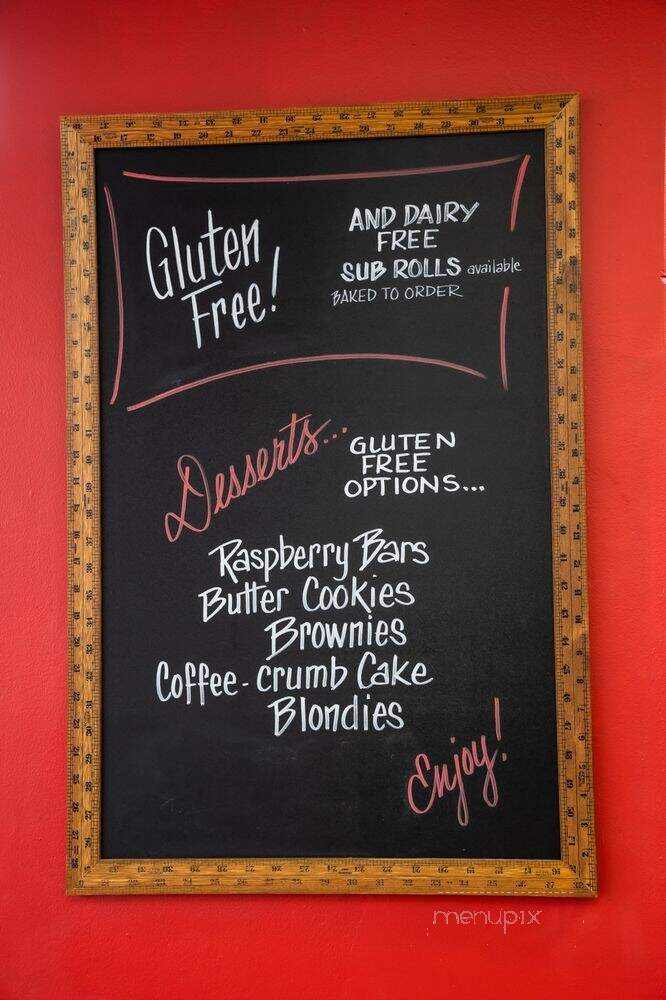 Gluten
Free!
AND DAIRY
FREE
SUB ROLLS available
BAKED TO ORDER
Desserts...
GLUTEN
FREE
OPTIONS...
Raspberry Bars
Butter Cookies
Brownies
Coffee-crumb Cake
Blondies
Enjoy!
menupix